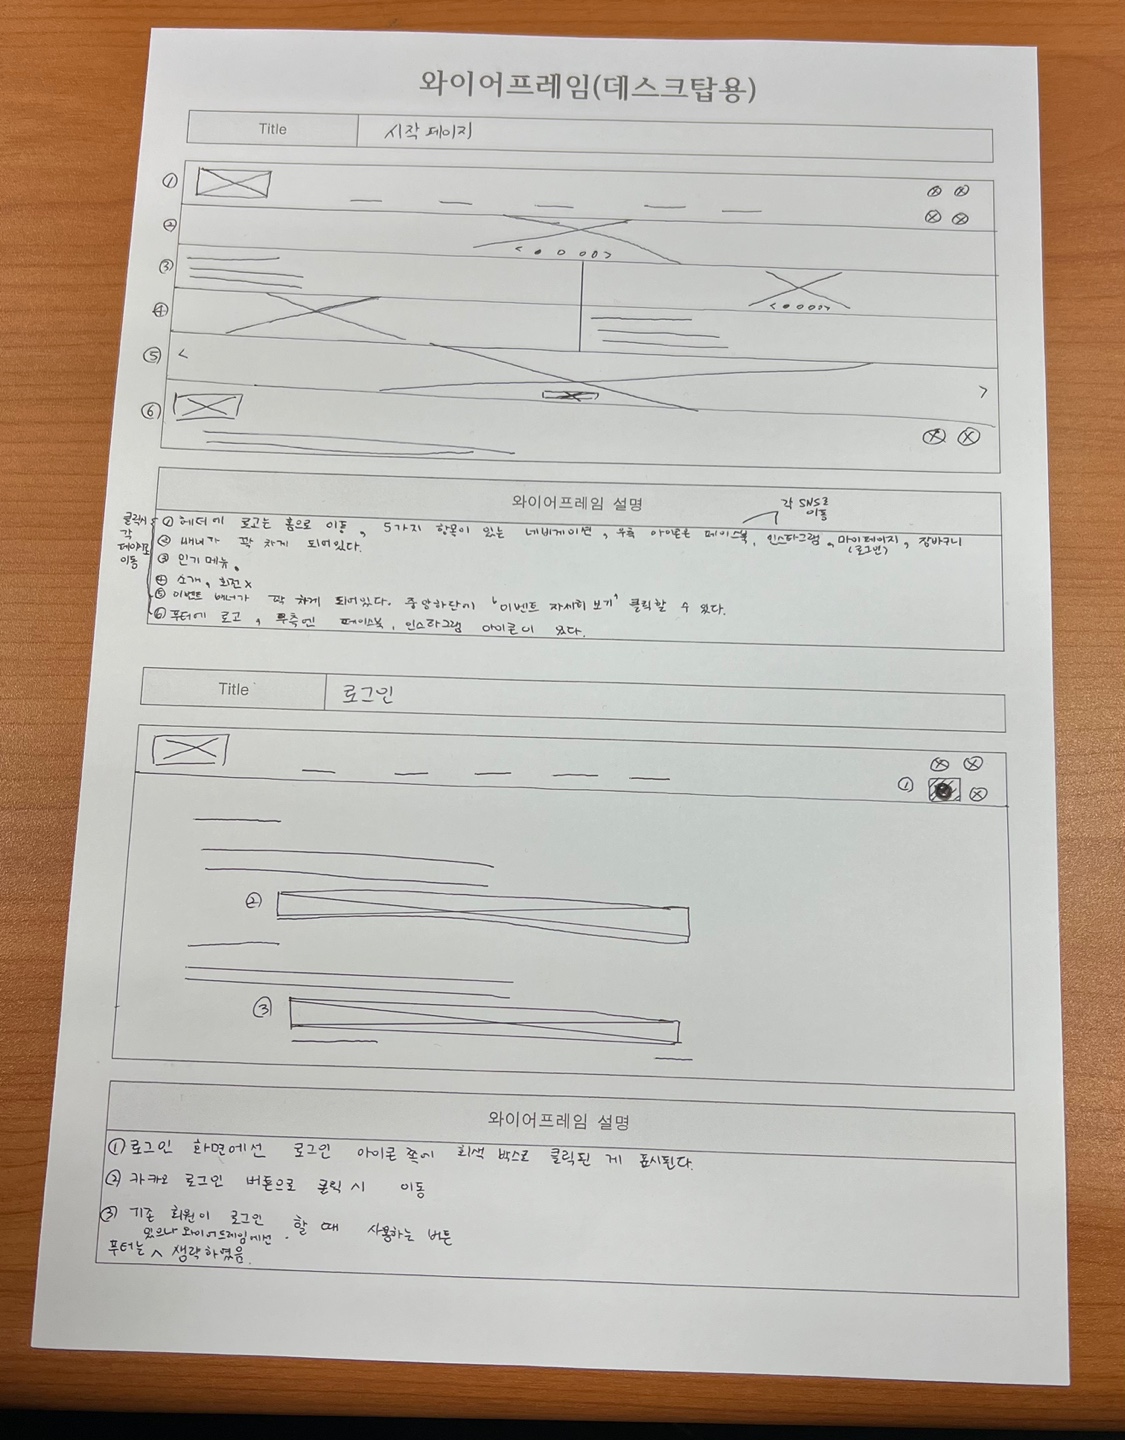 와이어프레임(데스크탑용)
Title 시작 페이지
①
②
< ● o o o >
③
< ● o o o >
④
⑤ < >
⑥
와이어프레임 설명
각 SNS로
이동
클릭시
각
페이지로
이동
① 헤더에 로고는 홈으로 이동, 5가지 항목이 있는 네비게이션, 우측 아이콘은 페이스북, 인스타그램, 마이페이지, 장바구니
(로그인)
② 배너가 꽉 차게 되어있다.
③ 인기 메뉴.
④ 소개, 회전 x
⑤ 이벤트 배너가 꽉 차게 되어있다. 중앙하단에 '이벤트 자세히 보기' 클릭할 수 있다.
⑥ 푸터에 로고, 우측엔 페이스북, 인스타그램 아이콘이 있다.
Title 로그인
①
②
③
와이어프레임 설명
① 로그인 화면에선 로그인 아이콘 쪽에 회색 박스로 클릭된 게 표시된다.
② 카카오 로그인 버튼으로 클릭 시 이동
③ 기존 회원이 로그인 할 때 사용하는 버튼
있으나 와이어프레임에선
푸터는 ^ 생략하였음.